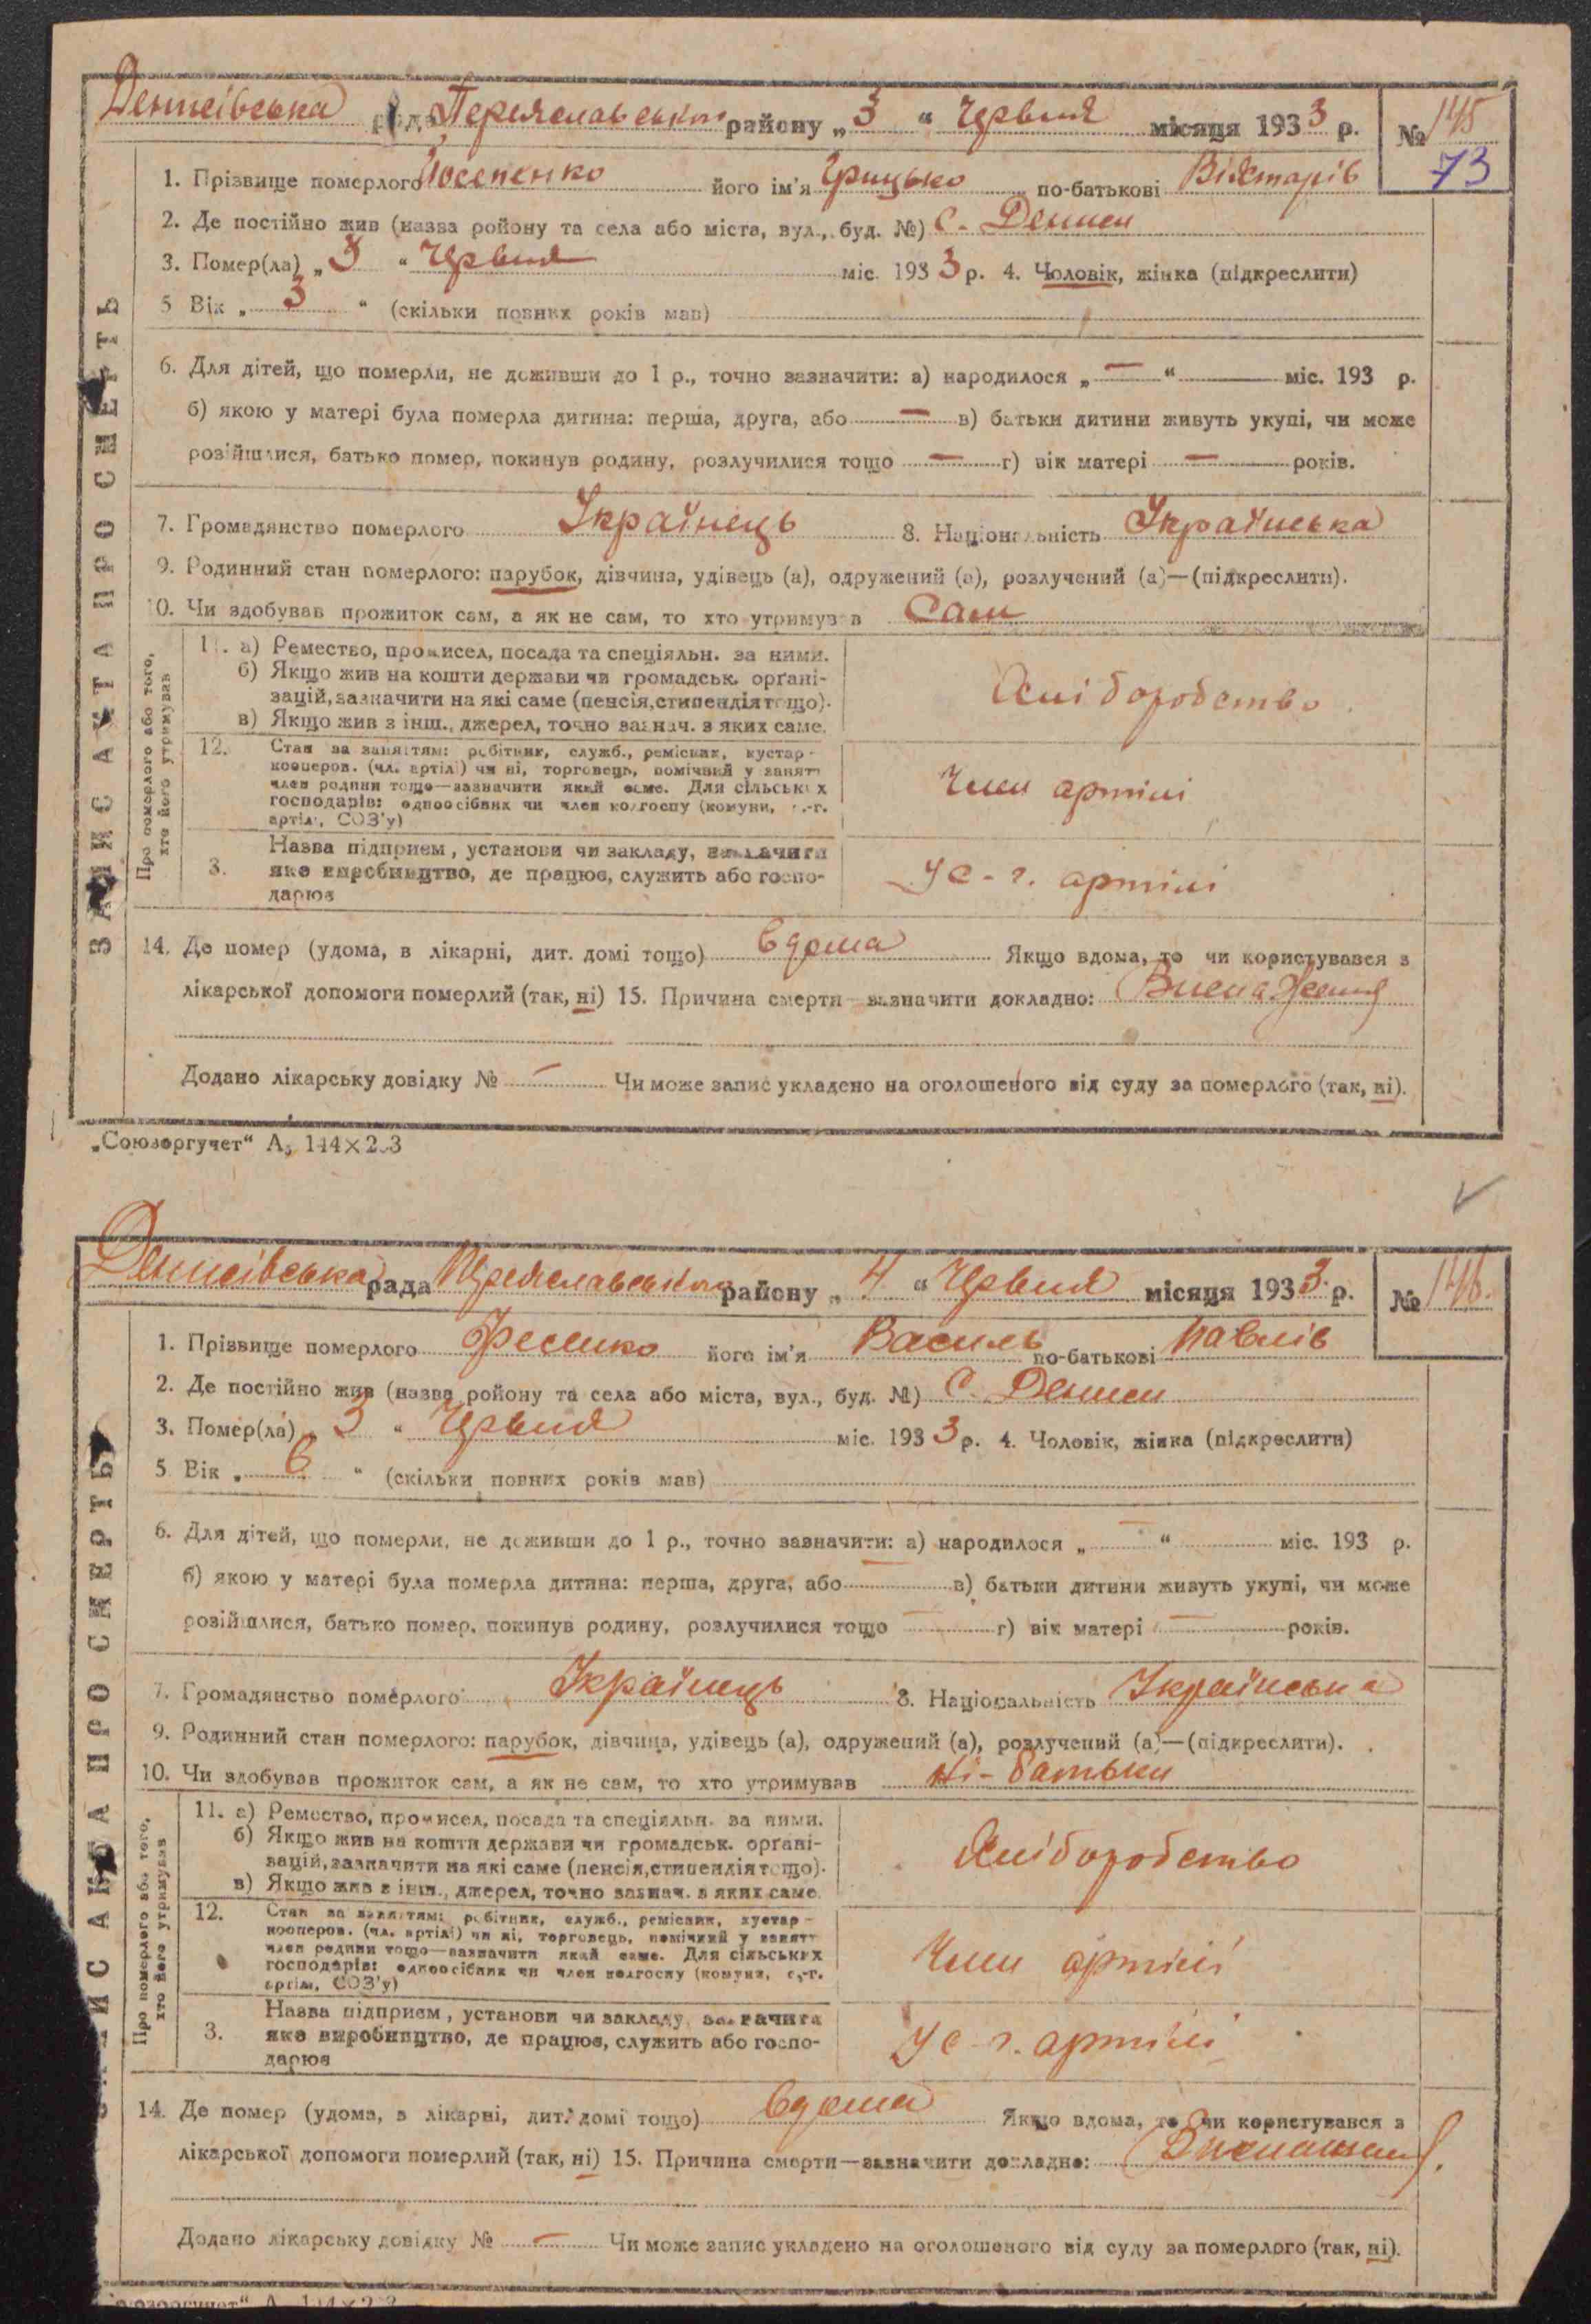 Денисівська рада Переяславського району „3“ Червня місяця 1933 р. № 145
73
1. Прізвище померлого Йосепенко його ім'я Грицько по-батькові
2. Де постійно жив (назва ройону та села або міста, вул., буд. №) с. Дениси
3. Помер(ла) „3“ Червня міс. 1933 р. 4. Чоловік, жінка (підкреслити)
5 Вік „3“ (скільки повних років мав)
6. Для дітей, що померли, не доживши до 1 р., точно зазначити: а) народилося „—“ — міс. 193 р.
б) якою у матері була померла дитина: перша, друга, або — в) батьки дитини живуть укупі, чи може
розійшлися, батько помер, покинув родину, розлучилися тощо — г) вік матері — років.
7. Громадянство померлого Українець 8. Національність Українська
9. Родинний стан померлого: парубок, дівчина, удівець (а), одружений (а), розлучений (а)—(підкреслити).
10. Чи здобував прожиток сам, а як не сам, то хто утримував Сам
ЗАПИС АКТА ПРО СМЕРТЬ
Про померлого або того, хто його утримував
11. а) Ремество, промисел, посада та спеціяльн. за ними.
б) Якщо жив на кошти держави чи громадськ. орґані-
зацій, зазначити на які саме (пенсія, стипендія тощо).
в) Якщо жив з інш., джерел, точно зазнач. з яких саме.
Хліборобство
12. Стан за заняттям: робітник, служб., ремісник, кустар -
кооперов. (чл. артілі) чи ні, торговець, помічний у занятт
член родини тощо—зазначити який саме. Для сільських
господарів: одноосібник чи член колгоспу (комуни, с.-г.
артілі, СОЗ'у)
Член артілі
3. Назва підприєм, установи чи закладу, зазначити
яке виробництво, де працює, служить або госпо-
дарює
У с-г. артілі
14. Де помер (удома, в лікарні, дит. домі тощо) вдома Якщо вдома, то чи користувався з
лікарської допомоги померлий (так, ні) 15. Причина смерти—зазначити докладно:
Додано лікарську довідку № — Чи може запис укладено на оголошеного від суду за померлого (так, ні).
„Союзоргучет“ А5 144×203
Денисівська рада Переяславського району „4“ Червня місяця 1933 р. № 146.
1. Прізвище померлого Фесенко його ім'я Василь по-батькові Павлів
2. Де постійно жив (назва ройону та села або міста, вул., буд. №) С. Дениси
3. Помер(ла) „3“ Червня міс. 1933 р. 4. Чоловік, жінка (підкреслити)
5. Вік „6“ (скільки повних років мав)
6. Для дітей, що померли, не доживши до 1 р., точно зазначити: а) народилося „—“ міс. 193 р.
б) якою у матері була померла дитина: перша, друга, або — в) батьки дитини живуть укупі, чи може
розійшлися, батько помер, покинув родину, розлучилися тощо — г) вік матері — років.
7. Громадянство померлого Українець 8. Національність Українська
9. Родинний стан померлого: парубок, дівчина, удівець (а), одружений (а), розлучений (а)—(підкреслити).
10. Чи здобував прожиток сам, а як не сам, то хто утримував Ні - батьки
ЗАПИС АКТА ПРО СМЕРТЬ
Про померлого або того, хто його утримував
11. а) Ремество, промисел, посада та спеціяльн. за ними.
б) Якщо жив на кошти держави чи громадськ. орґані-
зацій, зазначити на які саме (пенсія, стипендія тощо).
в) Якщо жив з інш., джерел, точно зазнач. з яких саме.
Хліборобство
12. Стан за заняттям: робітник, служб., ремісник, кустар -
кооперов. (чл. артілі) чи ні, торговець, помічний у занятт
член родини тощо—зазначити який саме. Для сільських
господарів: одноосібник чи член колгоспу (комуни, с.-г.
артілі, СОЗ'у)
Член артілі
3. Назва підприєм, установи чи закладу, зазначити
яке виробництво, де працює, служить або госпо-
дарює
У с-г. артілі
14. Де помер (удома, в лікарні, дит. домі тощо) вдома Якщо вдома, то чи користувався з
лікарської допомоги померлий (так, ні) 15. Причина смерти—зазначити докладно:
Додано лікарську довідку № — Чи може запис укладено на оголошеного від суду за померлого (так, ні).
„Союзоргучет“ А 144×203